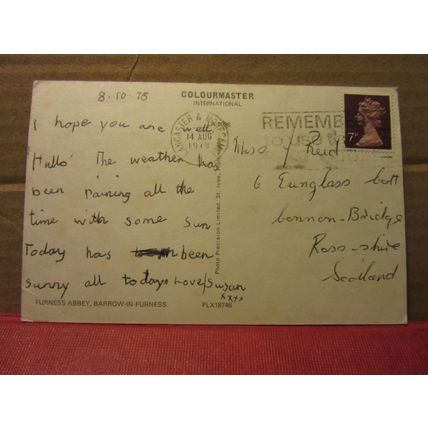 8-10-78
COLOURMASTER
INTERNATIONAL
I hope you are well
Hullo The weather has
been raining all the
time with some sun
Today has been
sunny all today Love Susan
xxxx
FURNESS ABBEY, BARROW-IN-FURNESS
PLX18746
Photo Precision Limited, St. Ives,
LANCASTER &
14 AUG
1978
REMEMBER
7P
Miss J Reid
6 Eunglass Cott
connon-Bridge
Ross-shire
Scotland